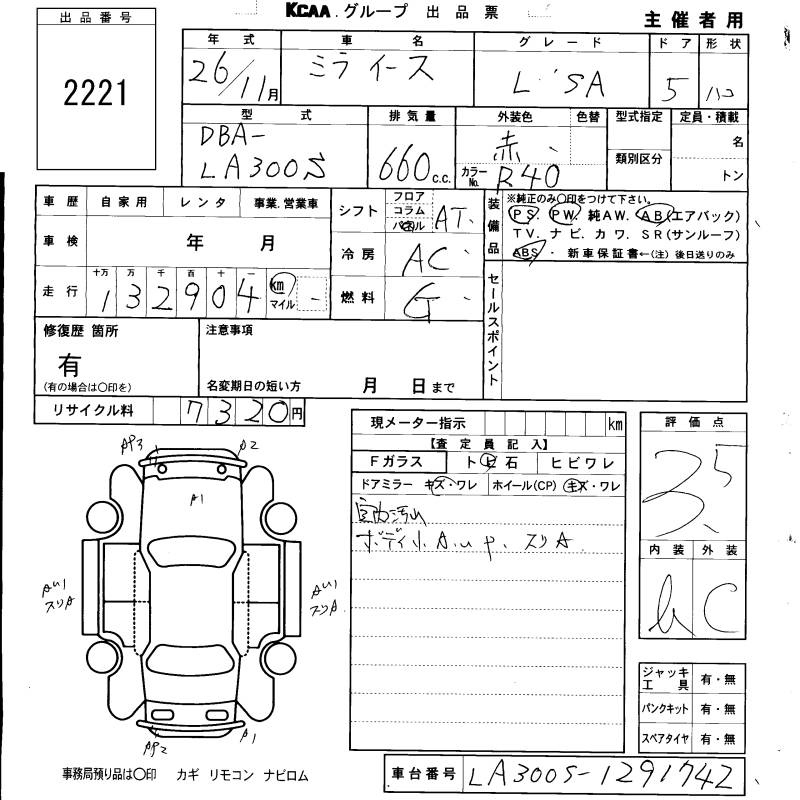 KCAA グループ 出品票
主催者用
出品番号
2221
年式 車名 グレード ドア 形状
26/11月 ミライース L・SA 5 ハコ
型式 排気量 外装色 色替 型式指定 定員・積載
DBA-
LA300S 660c.c. 赤 名
カラーNo. R40 類別区分 トン
車歴 自家用 レンタ 事業.営業車
車検 年 月
走行 十万 万 千 百 十 一
132904 km マイル
シフト フロア コラム パネル AT
冷房 AC
燃料 G
装備品
※純正のみ〇印をつけて下さい。
PS. PW. 純AW. AB(エアバック)
TV. ナビ. カワ. SR(サンルーフ)
ABS ・ 新車保証書←(注)後日送りのみ
セールスポイント
修復歴 箇所
有
(有の場合は〇印を)
注意事項
名変期日の短い方 月 日まで
リサイクル料 7320円
現メーター指示 km
【査定員記入】
Fガラス トビ石 ヒビワレ
ドアミラー キズ・ワレ ホイール(CP) キズ・ワレ
室内汚れ
ボディ小A.U.P. スリA
評価点
3.5
内装 外装
C
AP3 A2
A1
AU1
スリA
AU1
スリA
AP2 A1
ジャッキ工具 有・無
パンクキット 有・無
スペアタイヤ 有・無
事務局預り品は〇印 カギ リモコン ナビロム
車台番号 LA300S-1291742